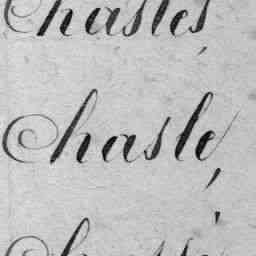 Chasles,
Chasle,